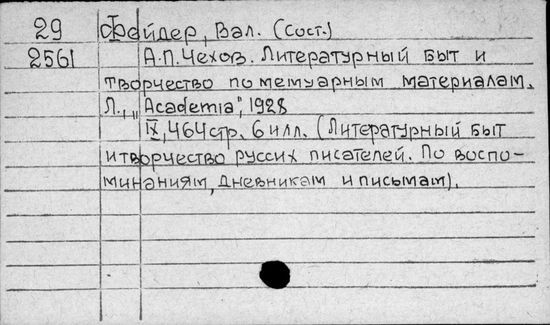 29 Фейдер, Вал. (Сост.)
2561 А.П. Чехов. Литературный быт и
творчество по мемуарным материалам.
Л., „Academia", 1928
IX, 464 стр. 6 илл. (Литературный быт
и творчество руссих писателей. По воспо-
минаниям, дневникам и письмам).